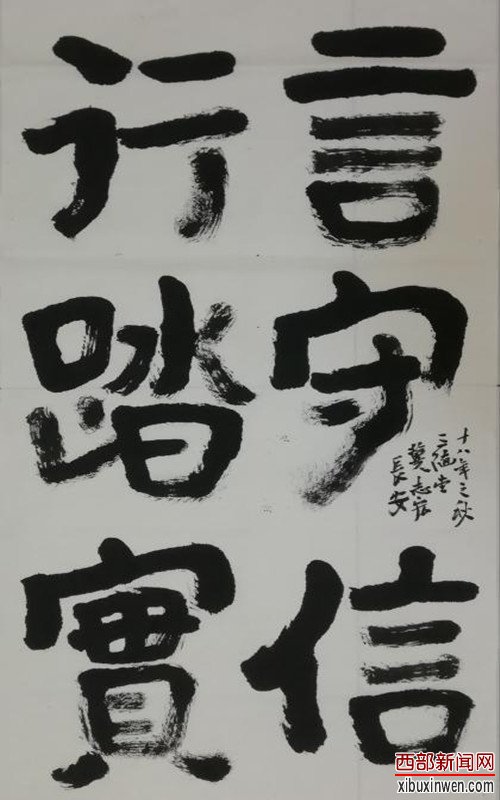 言守信
行踏實
十八年之秋
三德堂
龔志宏
長安
西部新闻网
xibuxinwen.com